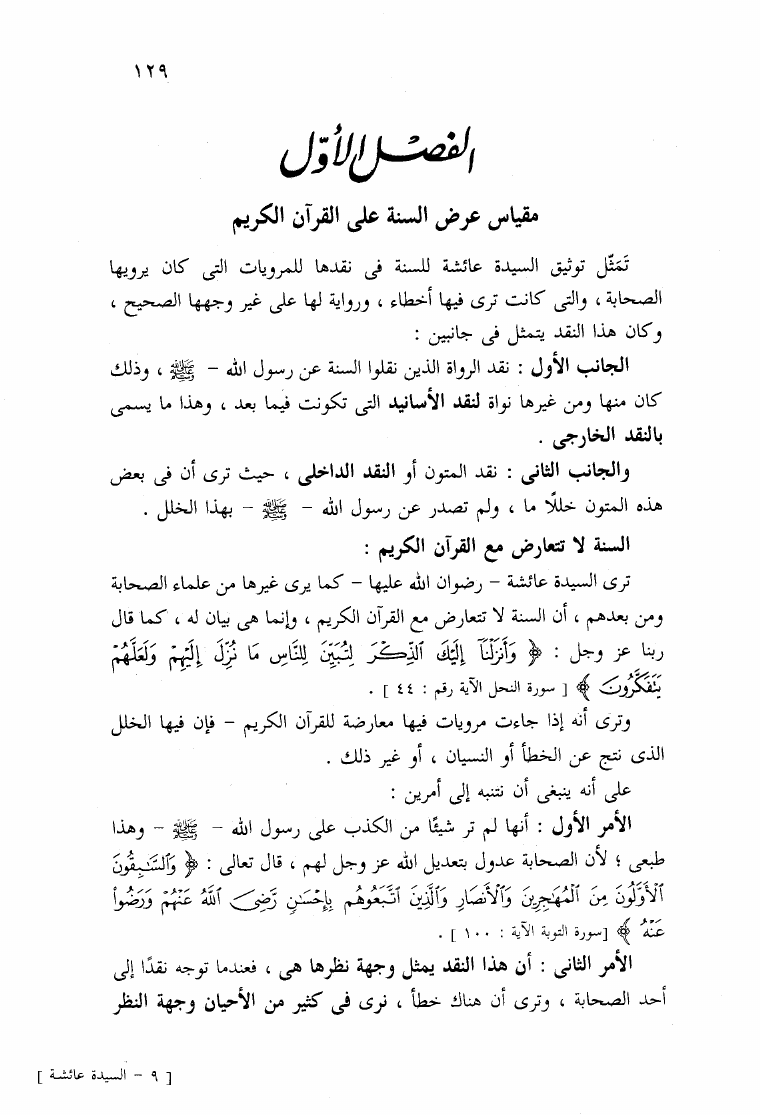 ١٢٩
الفصل الأوّل
مقياس عرض السنة على القرآن الكريم
تَمَثّل توثيق السيدة عائشة للسنة فى نقدها للمرويات التى كان يرويها
الصحابة ، والتى كانت ترى فيها أخطاء ، ورواية لها على غير وجهها الصحيح ،
وكان هذا النقد يتمثل فى جانبين :
الجانب الأول : نقد الرواة الذين نقلوا السنة عن رسول الله – ﷺ ، وذلك
كان منها ومن غيرها نواة لنقد الأسانيد التى تكونت فيما بعد ، وهذا ما يسمى
بالنقد الخارجى .
والجانب الثانى : نقد المتون أو النقد الداخلى ، حيث ترى أن فى بعض
هذه المتون خللًا ما ، ولم تصدر عن رسول الله – ﷺ – بهذا الخلل .
السنة لا تتعارض مع القرآن الكريم :
ترى السيدة عائشة – رضوان الله عليها – كما يرى غيرها من علماء الصحابة
ومن بعدهم ، أن السنة لا تتعارض مع القرآن الكريم ، وإنما هى بيان له ، كما قال
ربنا عز وجل : ﴿ وَأَنزَلْنَآ إِلَيْكَ ٱلذِّكْرَ لِتُبَيِّنَ لِلنَّاسِ مَا نُزِّلَ إِلَيْهِمْ وَلَعَلَّهُمْ
يَتَفَكَّرُونَ ﴾ [ سورة النحل الآية رقم : ٤٤ ] .
وترى أنه إذا جاءت مرويات فيها معارضة للقرآن الكريم – فإن فيها الخلل
الذى نتج عن الخطأ أو النسيان ، أو غير ذلك .
على أنه ينبغى أن نتنبه إلى أمرين :
الأمر الأول : أنها لم تر شيئًا من الكذب على رسول الله – ﷺ – وهذا
طبعى ؛ لأن الصحابة عدول بتعديل الله عز وجل لهم ، قال تعالى : ﴿ وَٱلسَّٰبِقُونَ
ٱلْأَوَّلُونَ مِنَ ٱلْمُهَٰجِرِينَ وَٱلْأَنصَارِ وَٱلَّذِينَ ٱتَّبَعُوهُم بِإِحْسَٰنٍ رَّضِىَ ٱللَّهُ عَنْهُمْ وَرَضُوا۟
عَنْهُ ﴾ [سورة التوبة الآية : ١٠٠ ] .
الأمر الثانى : أن هذا النقد يمثل وجهة نظرها هى ، فعندما توجه نقدًا إلى
أحد الصحابة ، وترى أن هناك خطأ ، نرى فى كثير من الأحيان وجهة النظر
[ ٩ – السيدة عائشة ]